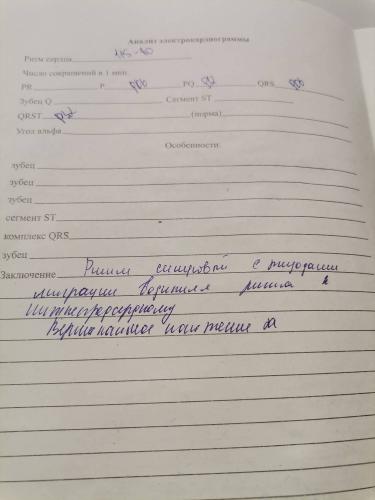 Анализ электрокардиограммы
Ритм сердца
Число сокращений в 1 мин.
PR P PQ QRS
Зубец Q Сегмент ST
QRST (норма)
Угол альфа
Особенности:
зубец
зубец
зубец
сегмент ST
комплекс QRS
зубец
Заключение Ритм синусовый с эпизодами
миграции водителя ритма к
нижнепредсердному
Вертикальное положение